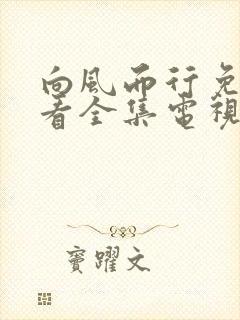 向風而行免
看全集電視
竇躍文